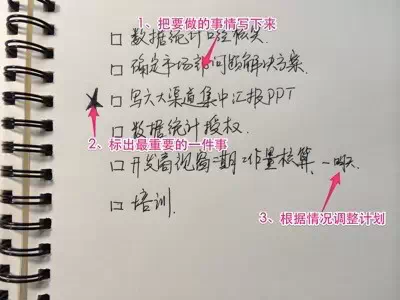 1、把要做的事情写下来
□ 数据统计口径核实.
□ 确定市场部问题解决方案.
★ 写六大渠道集中汇报PPT
□ 数据统计授权.
2、标出最重要的一件事
□ 开发商视窗二期工作量核算.
3、根据情况调整计划
□ 培训.